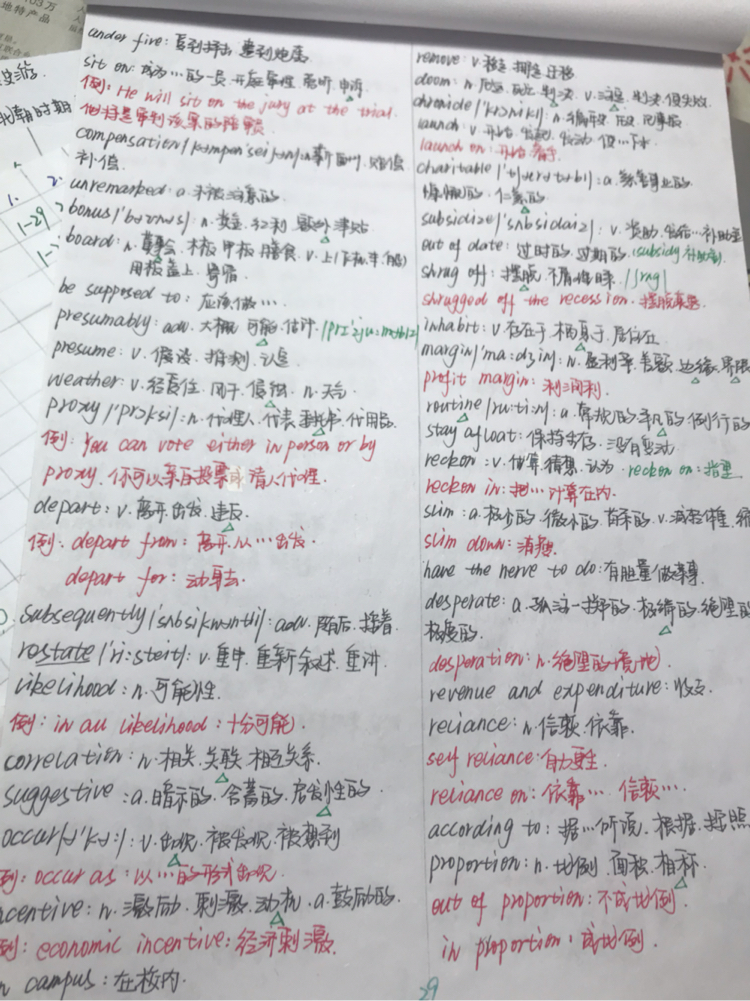 103万
地特产品
北朝时期
1.
2.
1-29
1-
under fire: 受到抨击 遭到炮轰
sit on: 成为…的一员 开庭审理 听 申诉
例: He will sit on the jury at the trial.
他将是审判该案的陪审员
compensation n. 赔偿
补偿
unremarked: a. 未被注意的
bonus n. 奖金. 红利 额外津贴
board: n. 董事会. 木板 甲板 膳食. v. 上(
用板盖上. 寄宿
be supposed to: 应该做…
presumably: adv. 大概 可能. 估计.
presume: v. 假设. 推测. 认定
weather: v. 经受住. n. 天气
proxy /'prɔksi/: n. 代理人. 代表 委托书. 代用品.
例: You can vote either in person or by
proxy. 你可以亲自投票或请人代理.
depart: v. 离开. 出发. 违反.
例: depart from: 离开. 从…出发.
depart for: 动身去
subsequently adv. 随后. 接着.
restate /'ri:'steit/: v. 重申. 重新叙述. 重讲.
likelihood: n. 可能性.
例: in all likelihood: 十分可能.
correlation: n. 相关. 关联. 相互关系.
suggestive: a. 暗示的. 含蓄的. 启发性的.
occur /ə'kə:/: v. 出现. 被发现. 被想到
例: occur as: 以…的形式出现
ncentive: n. 激励. 刺激. 动机. a. 鼓励的.
例: economic incentive: 经济刺激.
n campus: 在校内.
remove: v. 移迁
doom: n. 判决. v. 注定. 判决. 使失败.
chronicle /'krɔnikl/: n. 编年史.
launch: v. 开始 发起. 发动 使…下水
launch on: 开始 着手
charitable a. 慈善事业的.
慷慨的. 仁慈的
subsidize /'sʌbsidaiz/: v. 资助. 给…补助金
out of date: 过时的. 过期的. (subsidy 补助金)
shrug off: 摆脱. 不屑一顾. /ʃrʌg/
shrugged off the recession. 摆脱衰退.
inhabit: v. 存在于. 栖身于. 居住在
margin /'ma:dʒin/: n. 盈利率. 差额. 边缘. 界限
profit margin: 利润利
routine /ru:'ti:n/: a. 常规的. 平凡的. 例行的
stay afloat: 保持生存. 没有变动
reckon: v. 估算. 猜想. 认为. reckon on: 指望
reckon in: 把…计算在内.
slim: a. 极少的. 微小的. 苗条的. v. 减轻体重. 缩
slim down: 消瘦.
have the nerve to do: 有胆量做某事.
desperate: a. 孤注一掷的. 极端的. 绝望的
极度的.
desperation: n. 绝望的境地.
revenue and expenditure: 收支.
reliance: n. 信赖. 依靠.
self reliance: 自力更生.
reliance on: 依靠… 信赖….
according to: 据…所说. 根据. 按照
proportion: n. 比例. 面积. 相称.
out of proportion: 不成比例.
in proportion: 成比例.
29